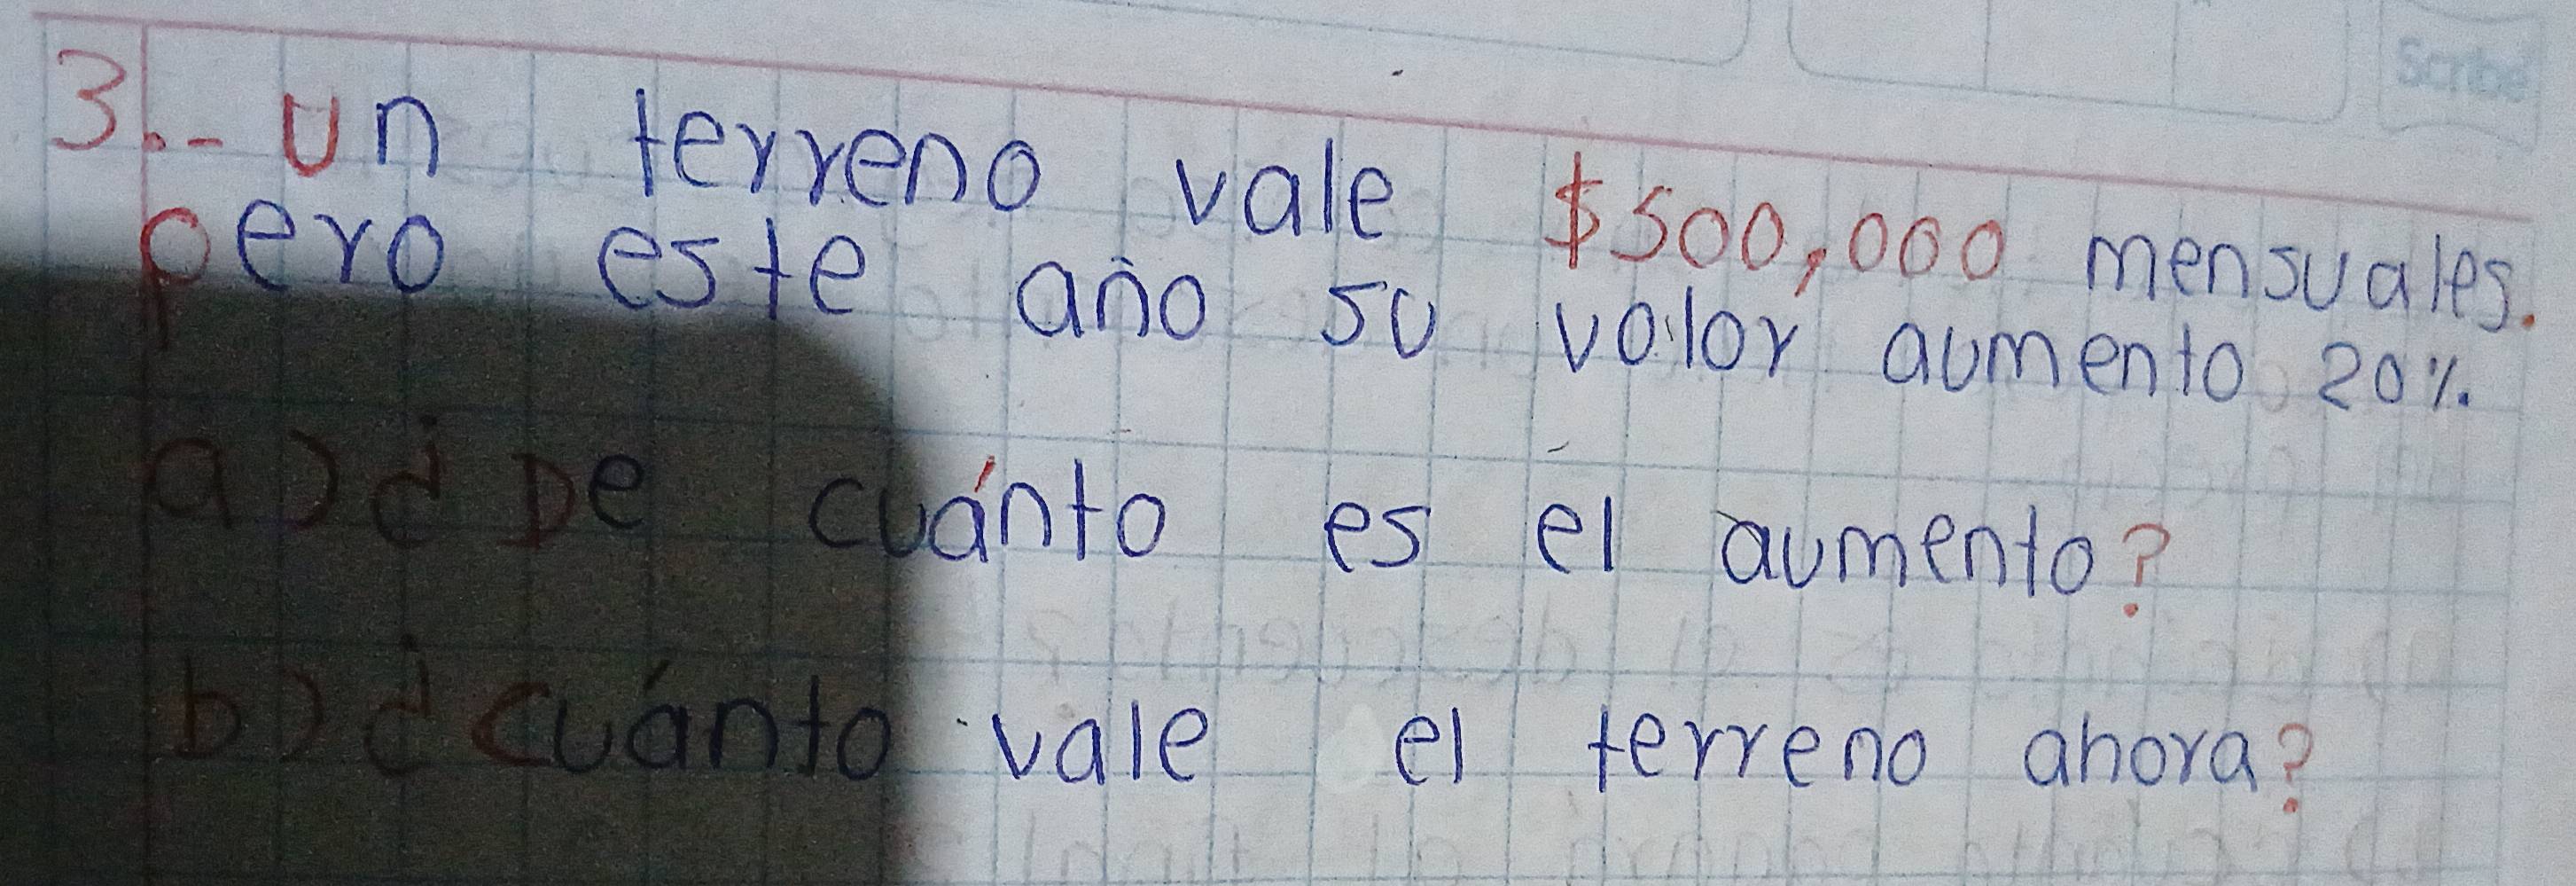 Scribe
3.- un terreno vale $500,000 mensuales.
pero este año su valor aumento 20%.
a) ¿De cuánto es el aumento?
b) ¿cuánto vale el terreno ahora?